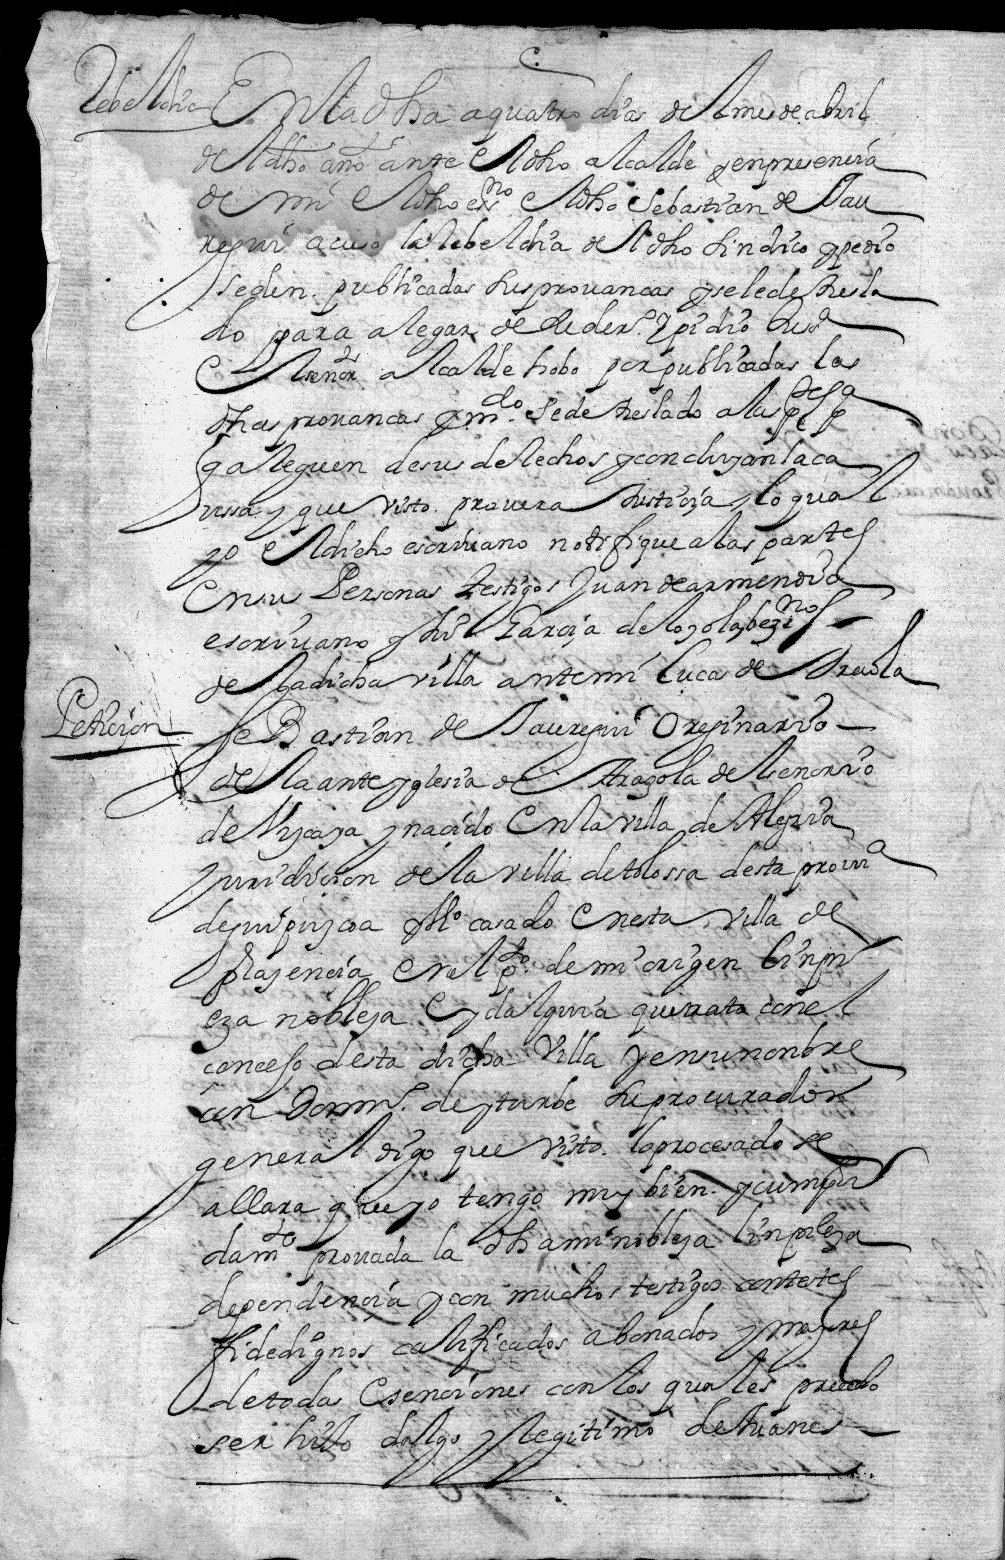 Rebeldia
En la dha a quatro dias del mes de abril
del dho año ante el dho alcalde y en presencia
de mi el dho essno el dho Sebastian de Jau
regui acuso la Rebeldia del dho sindico y pidio
se den publicadas sus prouancas y se le de tresla
do para alegar de su der.º y pidio Justª
El señor alcalde hobo por publicadas las
dhas prouancas y mdo se de treslado a las ptes pª
q aleguen de sus derechos y concluyan la ca
ussa y que visto prouera Justicia, lo qual
yo el dicho escriuano notifique a las partes
en sus Personas testigos Juan de armendia
escriuano y Garcia de loyola bezinos
de la dicha villa ante mi Lucas de
Peticion
Sebastian de Jauregui Oreginario
de la ante yglesia de Arazola del senorio
de Vizcaya y nacido en la villa de Alegria
Juridicion de la villa de tolossa desta prouiª
de guipuzcoa y casado en esta villa de
plazencia en el pto de mi origen linpi
eza nobleza e ydalguia que trata con el
concejo desta dicha Villa y en su nonbre
con Domin.º de yturbe su procurador
general digo que visto lo procesado se
allara que yo tengo muy bien y cumpli
damte prouada la dha mi nobleza linpieza
dependencia y con muchos testigos contestes
fidedignos calificados abonados y mayores
de todas esenciones con los quales prueuo
ser hijo dalgo y legitimo de Juanes